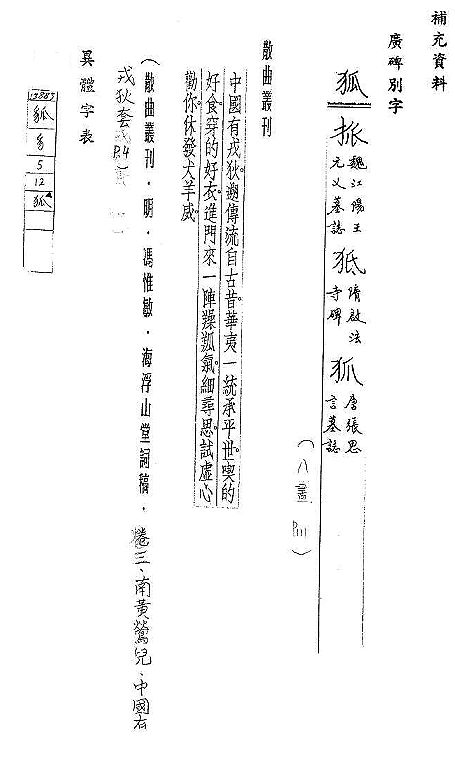 補充資料
廣碑別字
狐
魏江陽王
元乂墓誌
隋啟法
寺碑
狐
唐張思
言墓誌
(八畫 P111)
散曲叢刊
中國有戎狄遡傳流自古昔華夷一統承平世喫的
好食穿的好衣進門來一陣臊狐氣細尋思試虛心
勸你休發犬羊威
(散曲叢刊.明.馮惟敏.海浮山堂詞稿.卷三、南黃鶯兒、中國有
戎狄套 P.4)
異體字表
5
12